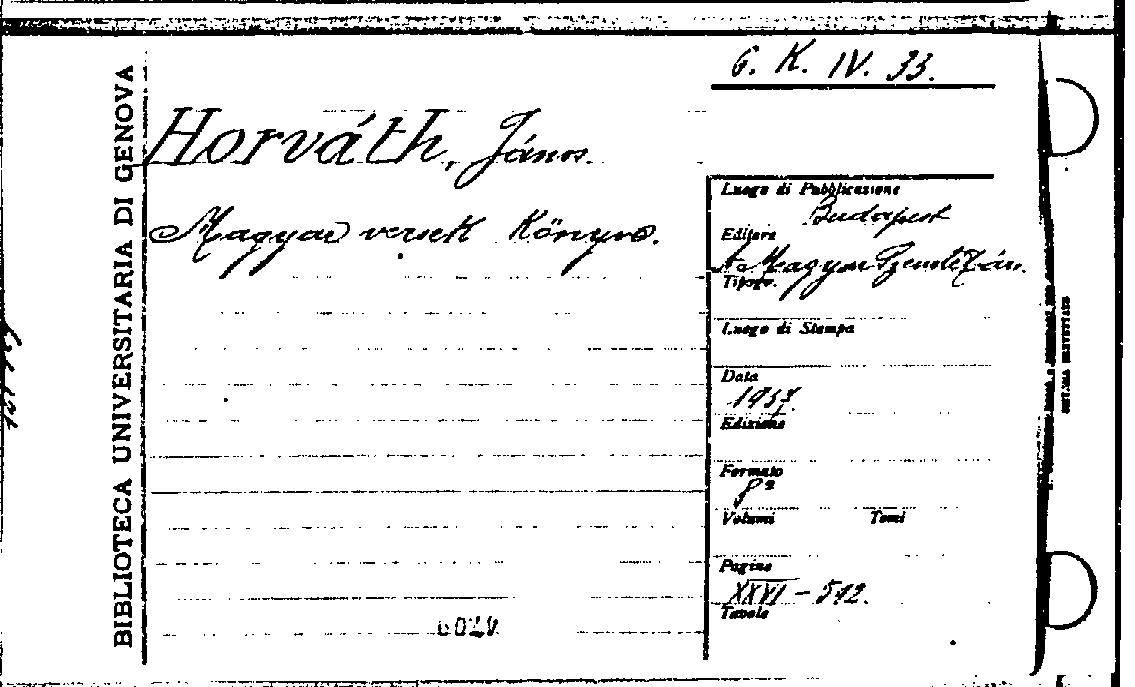 G. K. IV. 33.
BIBLIOTECA UNIVERSITARIA DI GENOVA
Horváth, János.
Magyar versek Könyve.
Luogo di Pubblicazione
Budapest
Editore
A Magyar
Tipogr.
Luogo di Stampa
Data
1937.
Edizione
Formato
8º
Volumi Tomi
Pagine
XXVI - 512.
Tavole